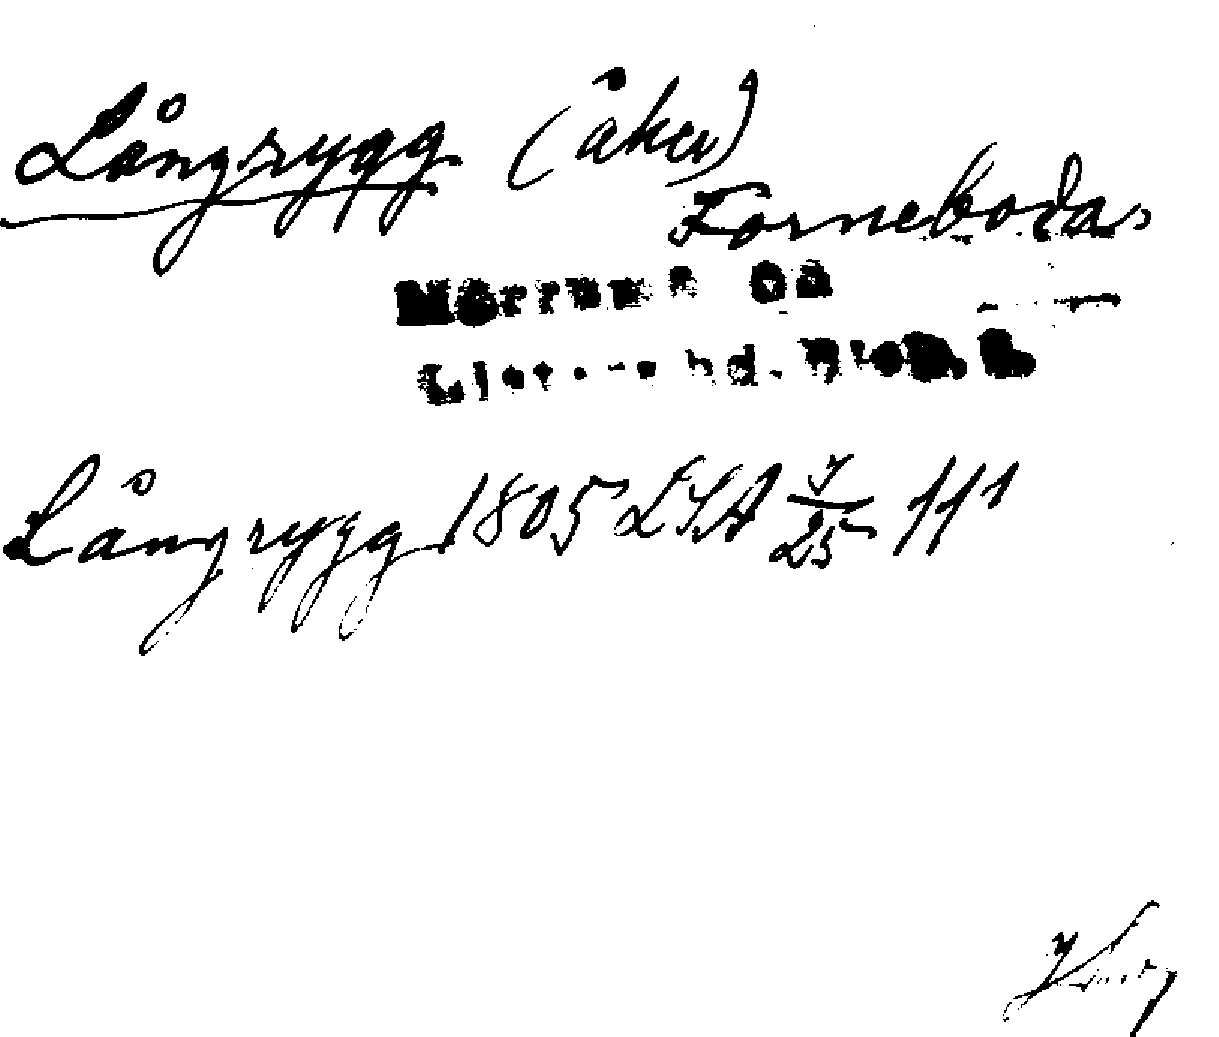 Långrygg (åker)
Forneboda,
Mörrums sn
Listers hd. Blek. l.
Långrygg 1805 LSA 7/25 11¹